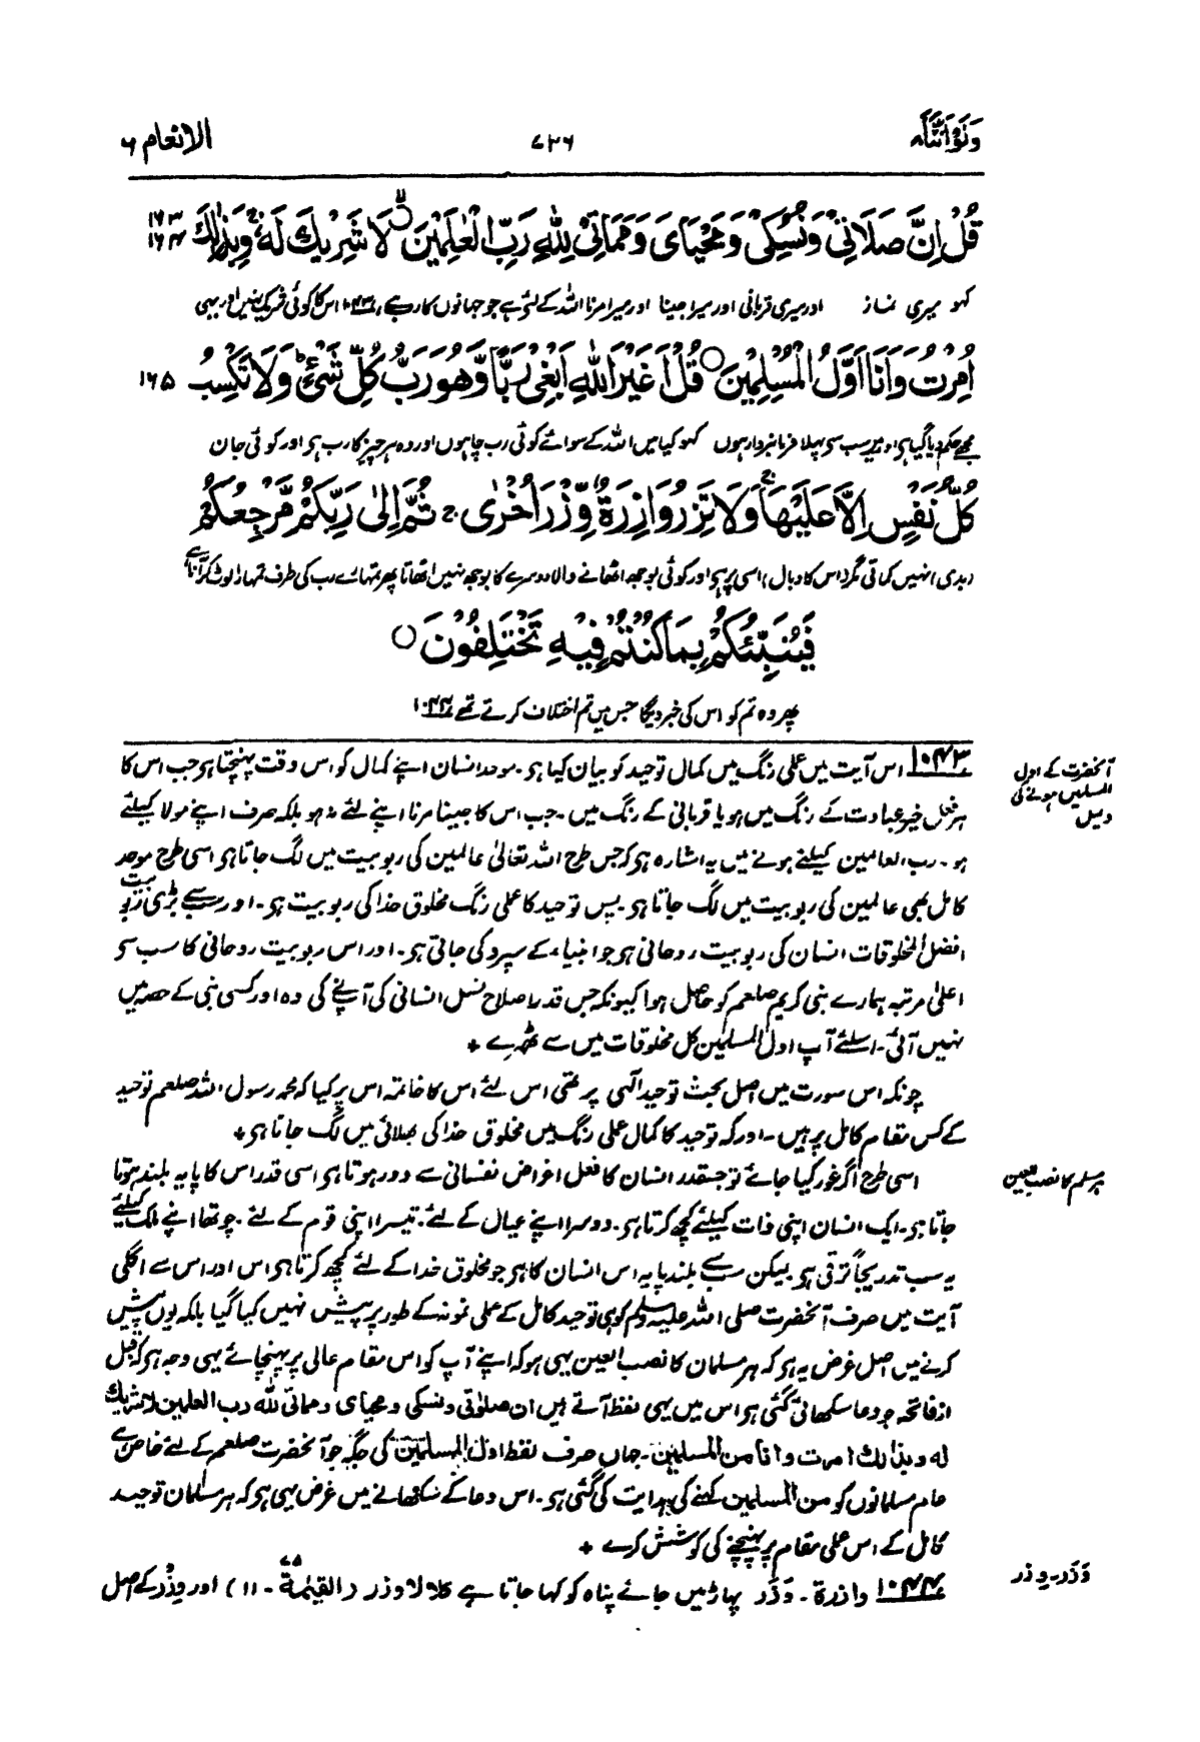 ولواننا ۷۳۶ الانعام ۶
قُلْ اِنَّ صَلَاتِیْ وَنُسُكِیْ وَمَحْيَایَ وَمَمَاتِیْ لِلّٰهِ رَبِّ الْعٰلَمِيْنَ ۙ لَا شَرِيْكَ لَهٗ ۚ وَبِذٰلِكَ ۱۶۳ ۱۶۴
کہو میری نماز اور میری قربانی اور میرا جینا اور میرا مرنا اللہ کے لئے ہے جو جہانوں کا رب ہے ۱۰۴۳ اس کا کوئی شریک نہیں اور یہی
اُمِرْتُ وَاَنَا اَوَّلُ الْمُسْلِمِيْنَ ○ قُلْ اَغَيْرَ اللّٰهِ اَبْغِیْ رَبًّا وَّهُوَ رَبُّ كُلِّ شَیْءٍ ؕ وَلَا تَكْسِبُ ۱۶۵
مجھے حکم دیا گیا ہو اور میں سب سے پہلا فرمانبردار ہوں کہو کیا میں اللہ کے سوائے کوئی رب چاہوں اور وہ ہر چیز کا رب ہو اور کوئی جان
كُلُّ نَفْسٍ اِلَّا عَلَيْهَا ۚ وَلَا تَزِرُ وَازِرَةٌ وِّزْرَ اُخْرٰی ۚ ثُمَّ اِلٰی رَبِّكُمْ مَّرْجِعُكُمْ
(بدی) نہیں کماتی مگر (اس کا وبال) اسی پر ہو اور کوئی بوجھ اٹھانے والا دوسرے کا بوجھ نہیں اٹھاتا پھر تمہارے رب کی طرف تمہارا لوٹ کر آنا ہے
فَيُنَبِّئُكُمْ بِمَا كُنْتُمْ فِيْهِ تَخْتَلِفُوْنَ ○
پھر وہ تم کو اس کی خبر دیگا جس میں تم اختلاف کرتے تھے ۱۰۴۴
۱۰۴۳ اس آیت میں عملی رنگ میں کمال توحید کو بیان کیا ہو۔ موحد انسان اپنے کمال کو اس وقت پہنچتا ہو جب اس کا
ہر فعل خیر عبادت کے رنگ میں ہو یا قربانی کے رنگ میں۔ جب اس کا جینا مرنا اپنے لئے نہ ہو بلکہ صرف اپنے مولا کیلئے
ہو۔ رب العالمین کیلئے ہونے میں یہ اشارہ ہو کہ جس طرح اللہ تعالیٰ عالمین کی ربوبیت میں لگ جاتا ہو اسی طرح موحد
کامل بھی عالمین کی ربوبیت میں لگ جاتا ہو۔ پس توحید کا عملی رنگ مخلوق خدا کی ربوبیت ہو۔ اور سب سے بڑی ربوبیت
افضل المخلوقات انسان کی ربوبیت روحانی ہو جو انبیاء کے سپرد کی جاتی ہو۔ اور اس ربوبیت روحانی کا سب سے
اعلیٰ مرتبہ ہمارے نبی کریم صلعم کو حاصل ہوا کیونکہ جس قدر اصلاح نسل انسانی کی آپ نے کی وہ اور کسی نبی کے حصہ میں
نہیں آئی۔ اسلئے آپ اول المسلمین کل مخلوقات میں سے ٹھہرے +
چونکہ اس سورت میں اصل بحث توحید الٰہی پر تھی اس لئے اس کا خاتمہ اس پر کیا کہ محمد رسول اللہ صلعم توحید
کے کس مقام کامل پر ہیں۔ اور کہ توحید کا کمال عملی رنگ میں مخلوق خدا کی بھلائی میں لگ جاتا ہو +
اسی طرح اگر غور کیا جائے تو جسقدر انسان کا فعل اغراض نفسانی سے دور ہوتا ہو اسی قدر اس کا پایہ بلند ہوتا
جاتا ہو۔ ایک انسان اپنی ذات کیلئے کچھ کرتا ہو۔ دوسرا اپنے عیال کے لئے۔ تیسرا اپنی قوم کے لئے۔ چوتھا اپنے ملک کیلئے
یہ سب تدریجاً ترقی ہو لیکن سب سے بلند پایہ اس انسان کا ہو جو مخلوق خدا کے لئے کچھ کرتا ہو اس اور اس سے اگلی
آیت میں صرف آنحضرت صلی اللہ علیہ وسلم کو ہی توحید کامل کے عملی نمونہ کے طور پر پیش نہیں کیا گیا بلکہ یوں پیش
کرنے میں اصل غرض یہ ہو کہ ہر مسلمان کا نصب العین یہی ہو کہ اپنے آپ کو اس مقام عالی پر پہنچائے یہی وجہ ہو کہ قبل
از فاتحہ جو دعا سکھائی گئی ہو اس میں یہی لفظ آتے ہیں ان صلوتی ونسکی ومحیای ومماتی للہ رب العلمین لا شریک
لہ وبذلک امرت وانا من المسلمین۔ جہاں صرف لفظ اول المسلمین کی جگہ جو آنحضرت صلعم کے لئے خاص ہے
عام مسلمانوں کو من المسلمین کہنے کی ہدایت کی گئی ہو۔ اس دعا کے سکھانے میں غرض یہی ہو کہ ہر مسلمان توحید
کامل کے اس عملی مقام پر پہنچنے کی کوشش کرے +
۱۰۴۴ وازرۃ۔ وَزَر پہاڑ میں جائے پناہ کو کہا جاتا ہے کلا لا وزر (القیٰمۃ ۷۵۔ ۱۱) اور وِزْر کے اصل
آنحضرت کے اول
المسلمین ہونے کی
دلیل
ہر مسلم کا نصب العین
وَزَر۔ وِزر